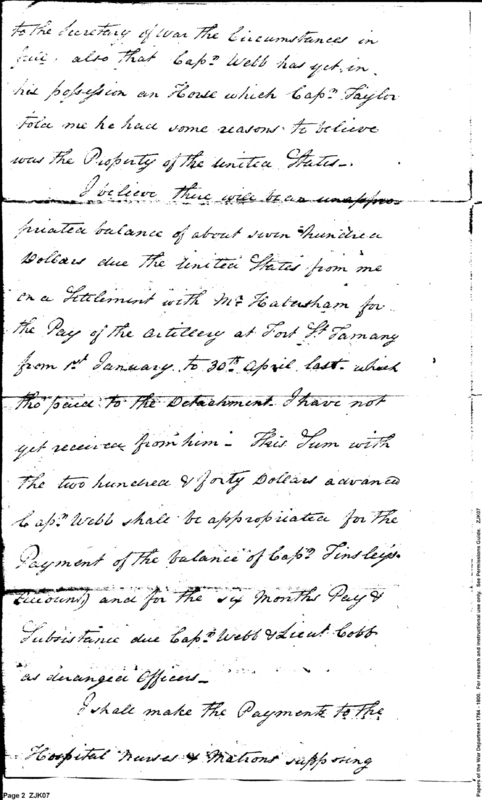 to the Secretary of War the Circumstances in
full. also that Capn. Webb has yet in
his possession an Horse which Capn. Taylor
told me he had some reasons to believe
was the Property of the United States_.
I believe there will be an unappro-
priated balance of about seven hundred
Dollars due the United States from me
on a Settlement with Mr. Habersham for
the Pay of the Artillery at Fort St. Tamany
from 1st January to 30th April last. which
tho' paid to the Detachment I have not
yet received from him_ This Sum with
the two hundred & forty Dollars advanced
Capn. Webb shall be appropriated for the
Payment of the balance of Capn. Tinsley's
Account) and for the six Months Pay &
Subsistance due Capn. Webb & Lieut Cobb
as deranged Officers_
I shall make the Payments to the
Hospital Nurses & Matrons supposing
Page 2 ZJK07
Papers of the War Department 1784 - 1800. For research and instructional use only. See Permissions Guide. ZJK07